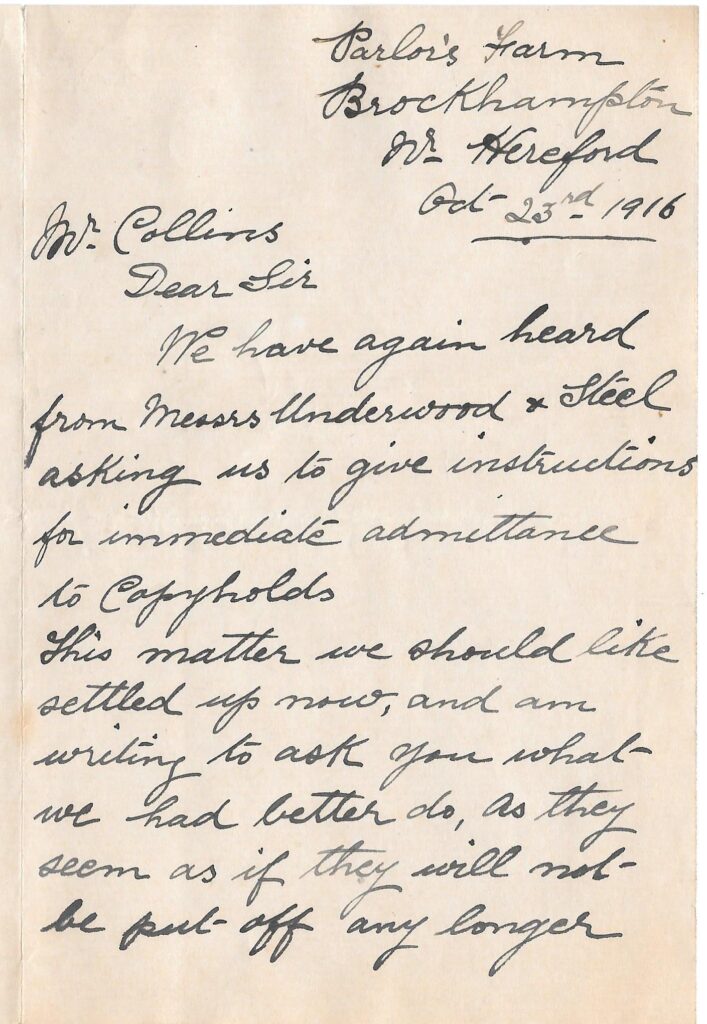 Parlor's Farm
Brockhampton
Nr Hereford
Oct 23rd 1916
Mr. Collins
Dear Sir
We have again heard
from Messrs Underwood & Steel
asking us to give instructions
for immediate admittance
to Copyholds
This matter we should like
settled up now, and am
writing to ask you what
we had better do, as they
seem as if they will not
be put off any longer